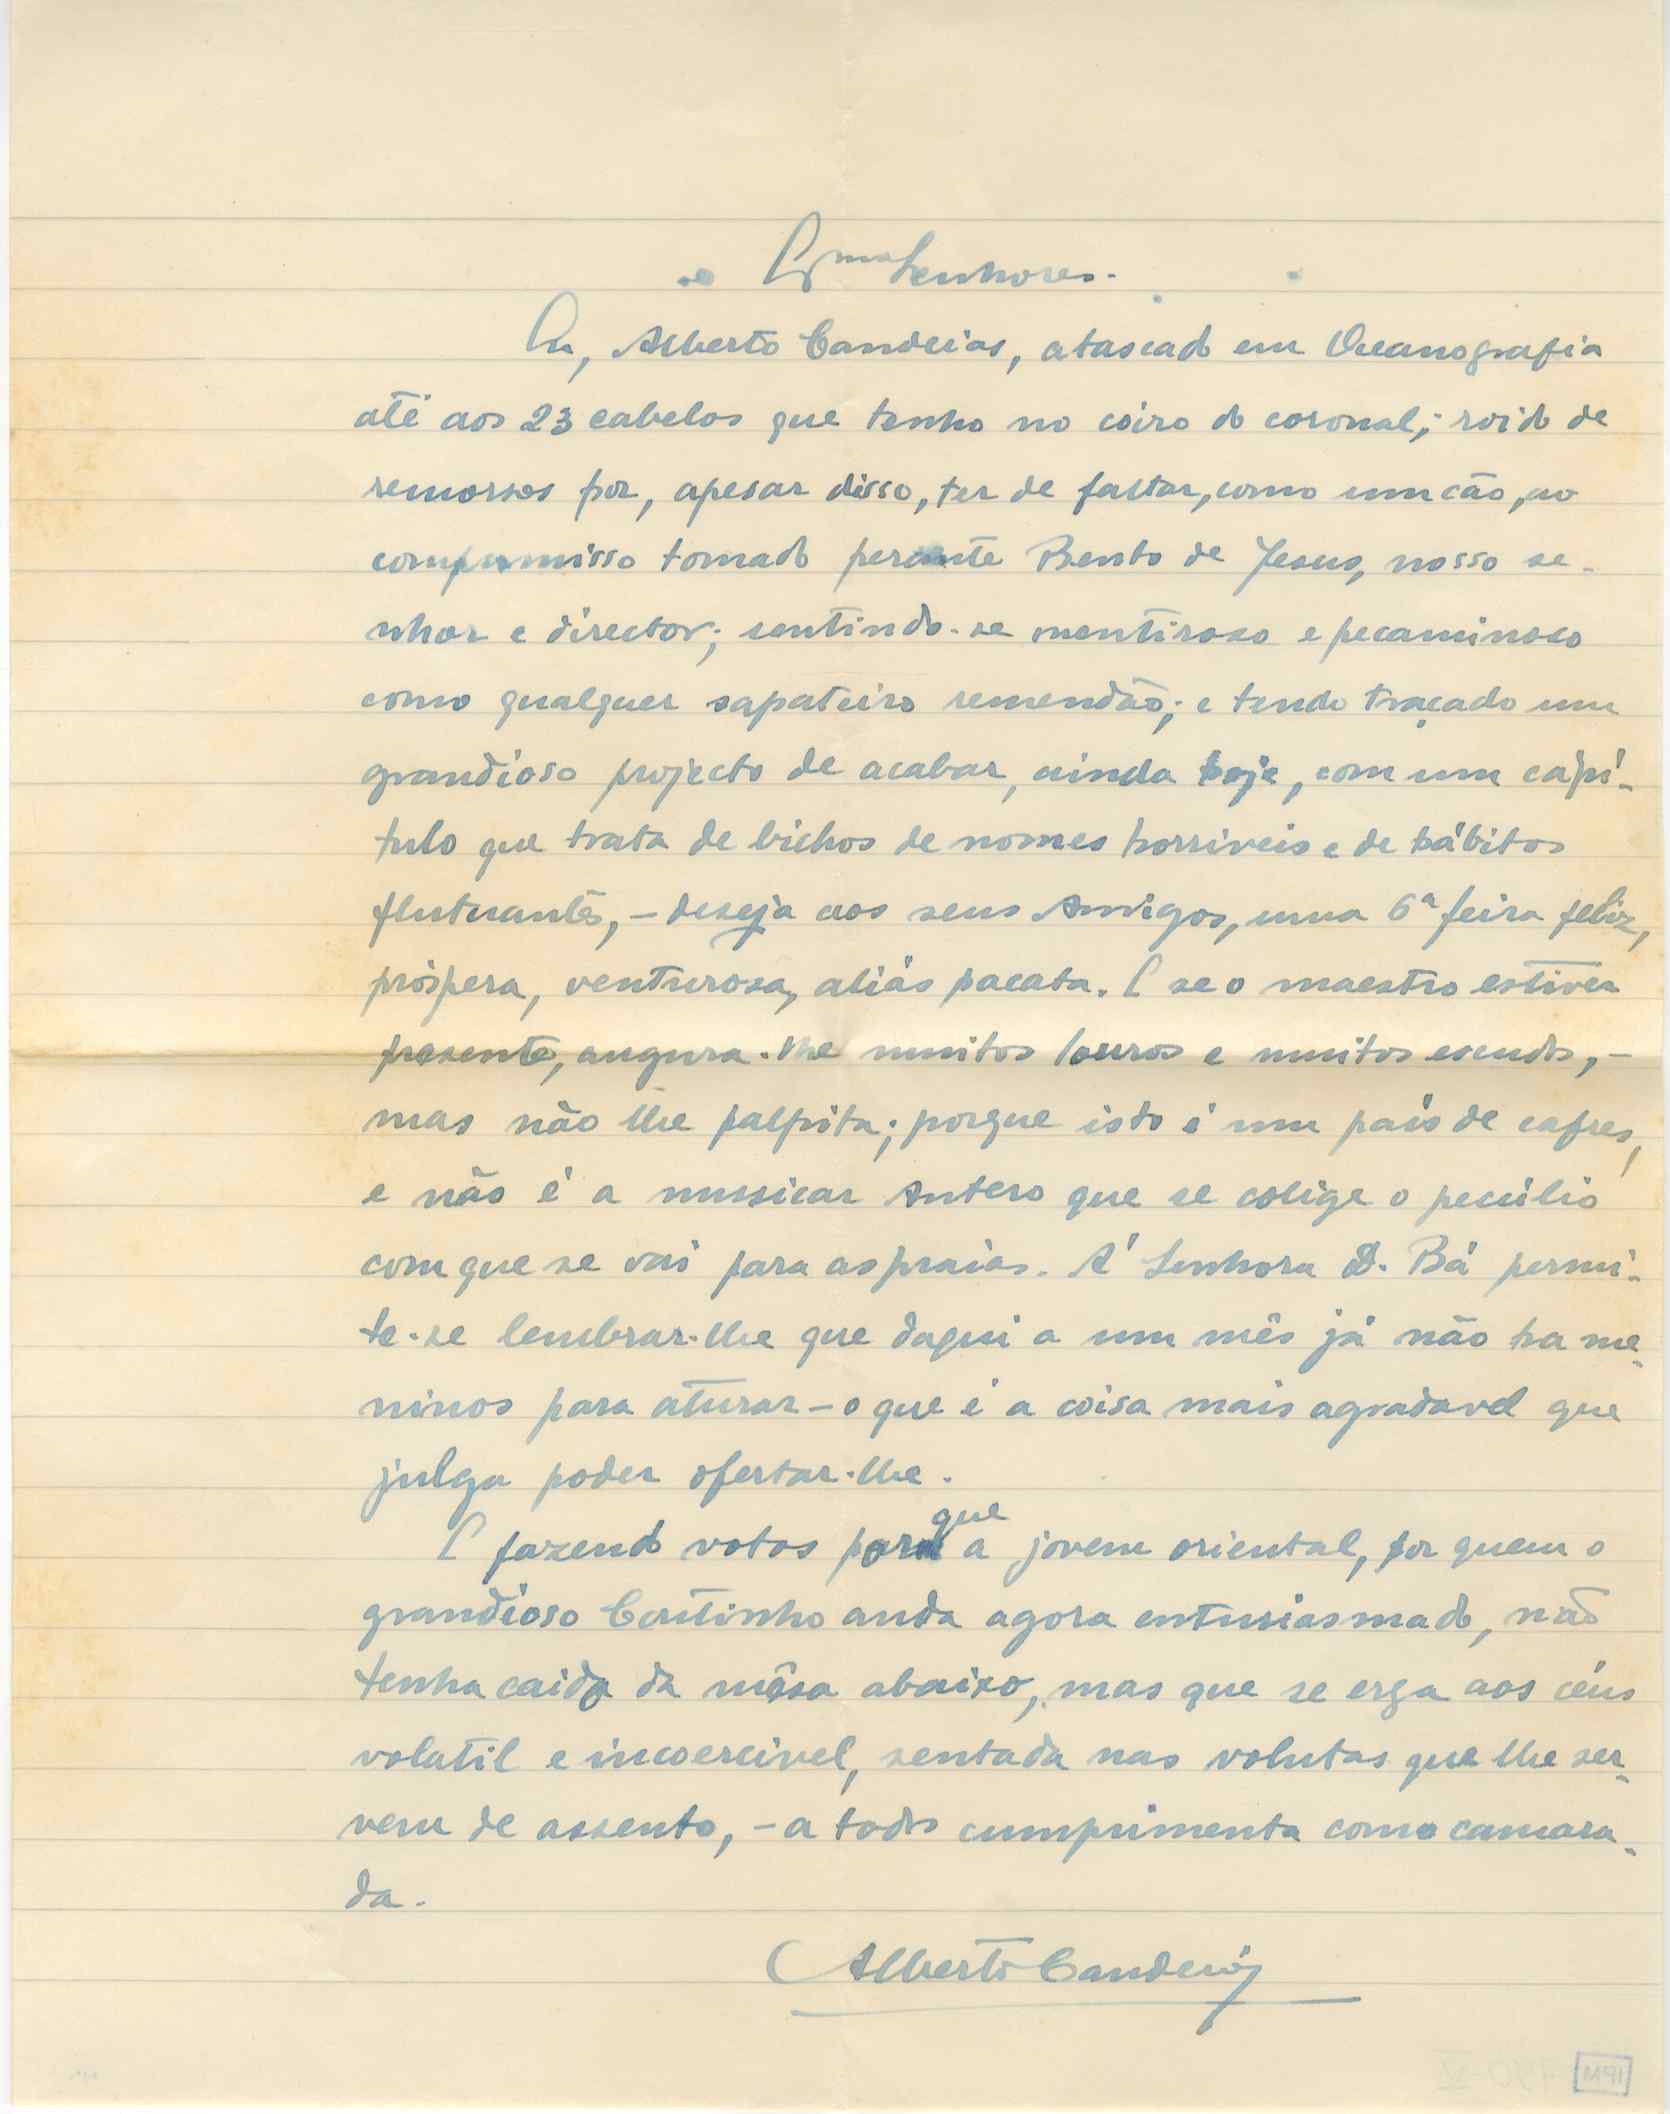 Exmos Senhores.
Eu, Alberto Candeias, atascado em Oceanografia
até aos 23 cabelos que tenho no coiro do coronal; roido de
remorsos por, apesar disso, ter de faltar, como um cão, ao
compromisso tomado perante Bento de Jesus, nosso se-
nhor e director; sentindo-se mentiroso e pecaminoso
como qualquer sapateiro remendão; e tendo traçado um
grandioso projecto de acabar, ainda hoje, com um capí-
tulo que trata de bichos de nomes horriveis e de hábitos
flutuantes, - deseja aos seus Amigos, uma 6ª feira feliz,
próspera, venturosa, aliás pacata. E se o maestro estiver
presente, augura-lhe muitos louros e muitos escudos, -
mas não lhe palpita; porque isto é um país de cafres,
e não é a musicar Antero que se colige o pecúlio
com que se vai para as praias. Á Senhora D. Bá permi-
te-se lembrar-lhe que daqui a um mês já não ha me-
ninos para aturar - o que é a coisa mais agradavel que
julga poder ofertar-lhe.
E fazendo votos para que a jovem oriental, por quem o
grandioso Coutinho anda agora entusiasmado, não
tenha caido da mêsa abaixo, mas que se erga aos céus
volatil e incoercivel, sentada nas volutas que lhe ser-
vem de assento, - a todos cumprimenta como camara-
da.
Alberto Candeias
IPM